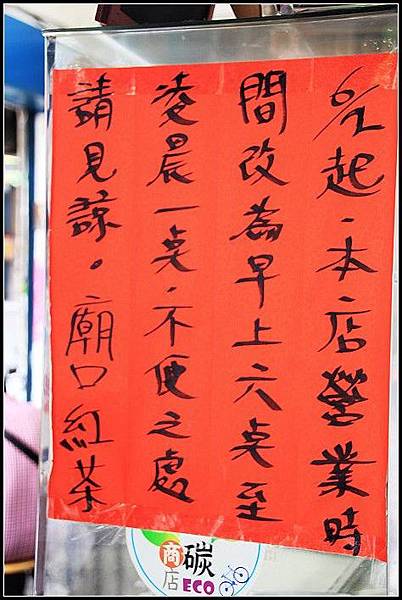 6/2起.本店營業時
間改為早上六奌至
凌晨一奌.不便之處
請見諒。廟口紅茶
商店
碳
ECO